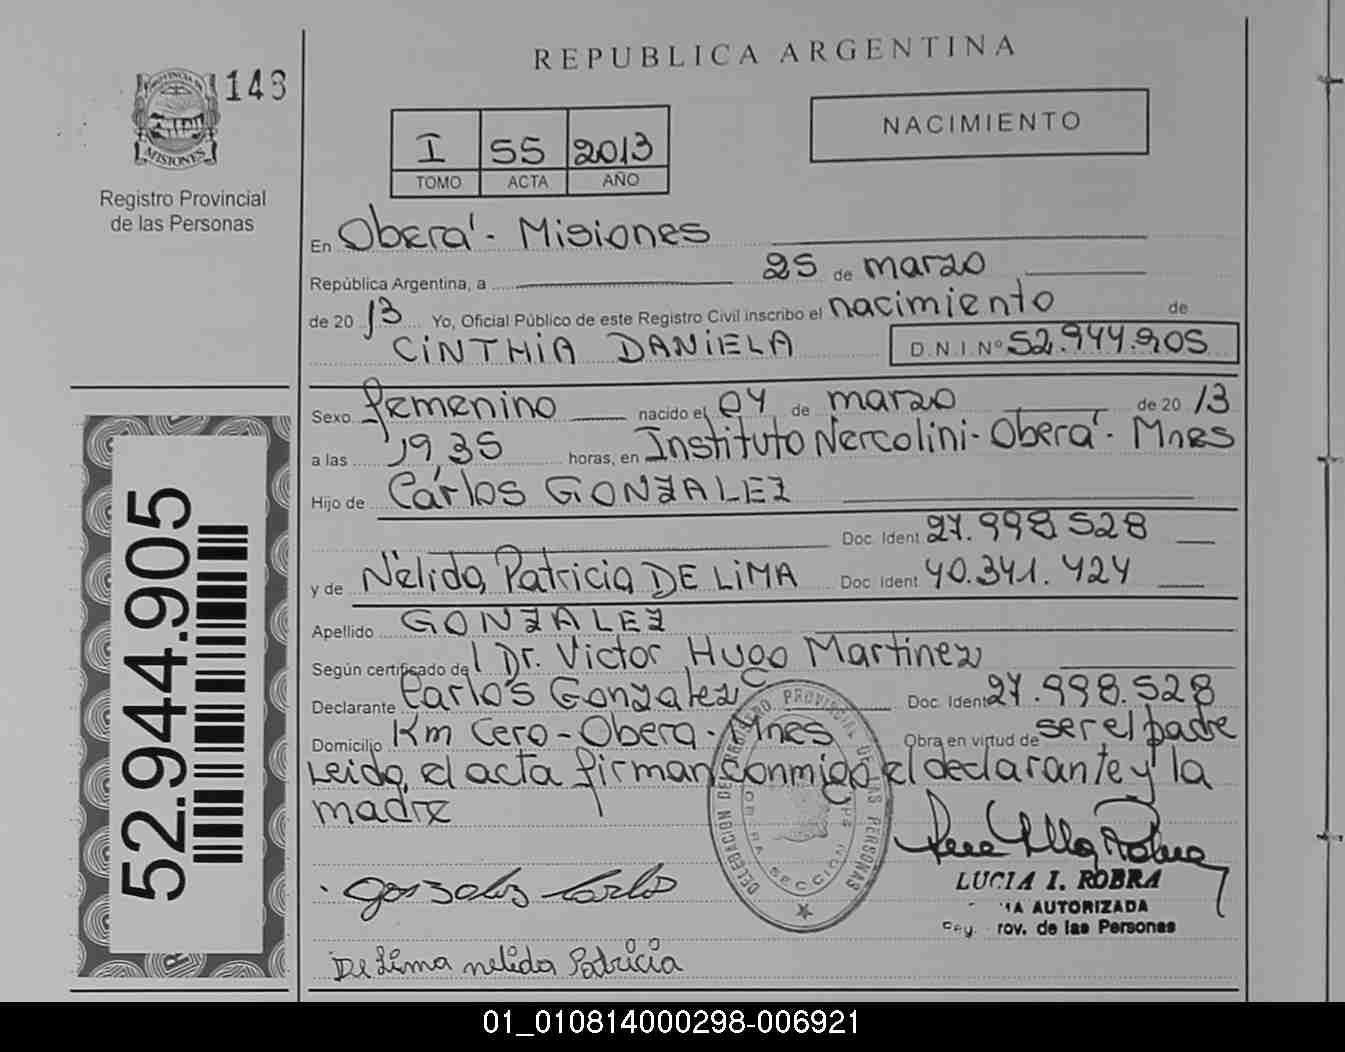 REPUBLICA ARGENTINA
PROVINCIA DE
MISIONES
143
Registro Provincial
de las Personas
I 55 2013
TOMO ACTA AÑO
NACIMIENTO
En Oberá - Misiones
República Argentina, a 25 de marzo
de 20 13 Yo, Oficial Público de este Registro Civil inscribo el nacimiento de
CINTHIA DANIELA D.N.I. Nº 52.944.905
Sexo femenino nacido el 04 de marzo de 20 13
a las 19 35 horas, en Instituto Nercolini - Oberá - Mnes
Hijo de Carlos GONZALEZ
Doc. Ident 27.998.528
y de Nélida Patricia DE LIMA Doc. Ident 40.341.424
Apellido GONZALEZ
Según certificado del Dr. Victor Hugo Martinez
Declarante Carlos Gonzalez Doc. Ident 27.998.528
Domicilio Km Cero - Obera - Mnes Obra en virtud de ser el padre
Leida el acta firman conmigo el declarante y la
madre
52.944.905
DELEGACION DEL REGISTRO PROVINCIAL DE LAS PERSONAS
SECCION
Gonzalez Carlos
LUCIA I. ROBRA
AUTORIZADA
rov. de las Personas
De Lima nelida Patricia
01_010814000298-006921